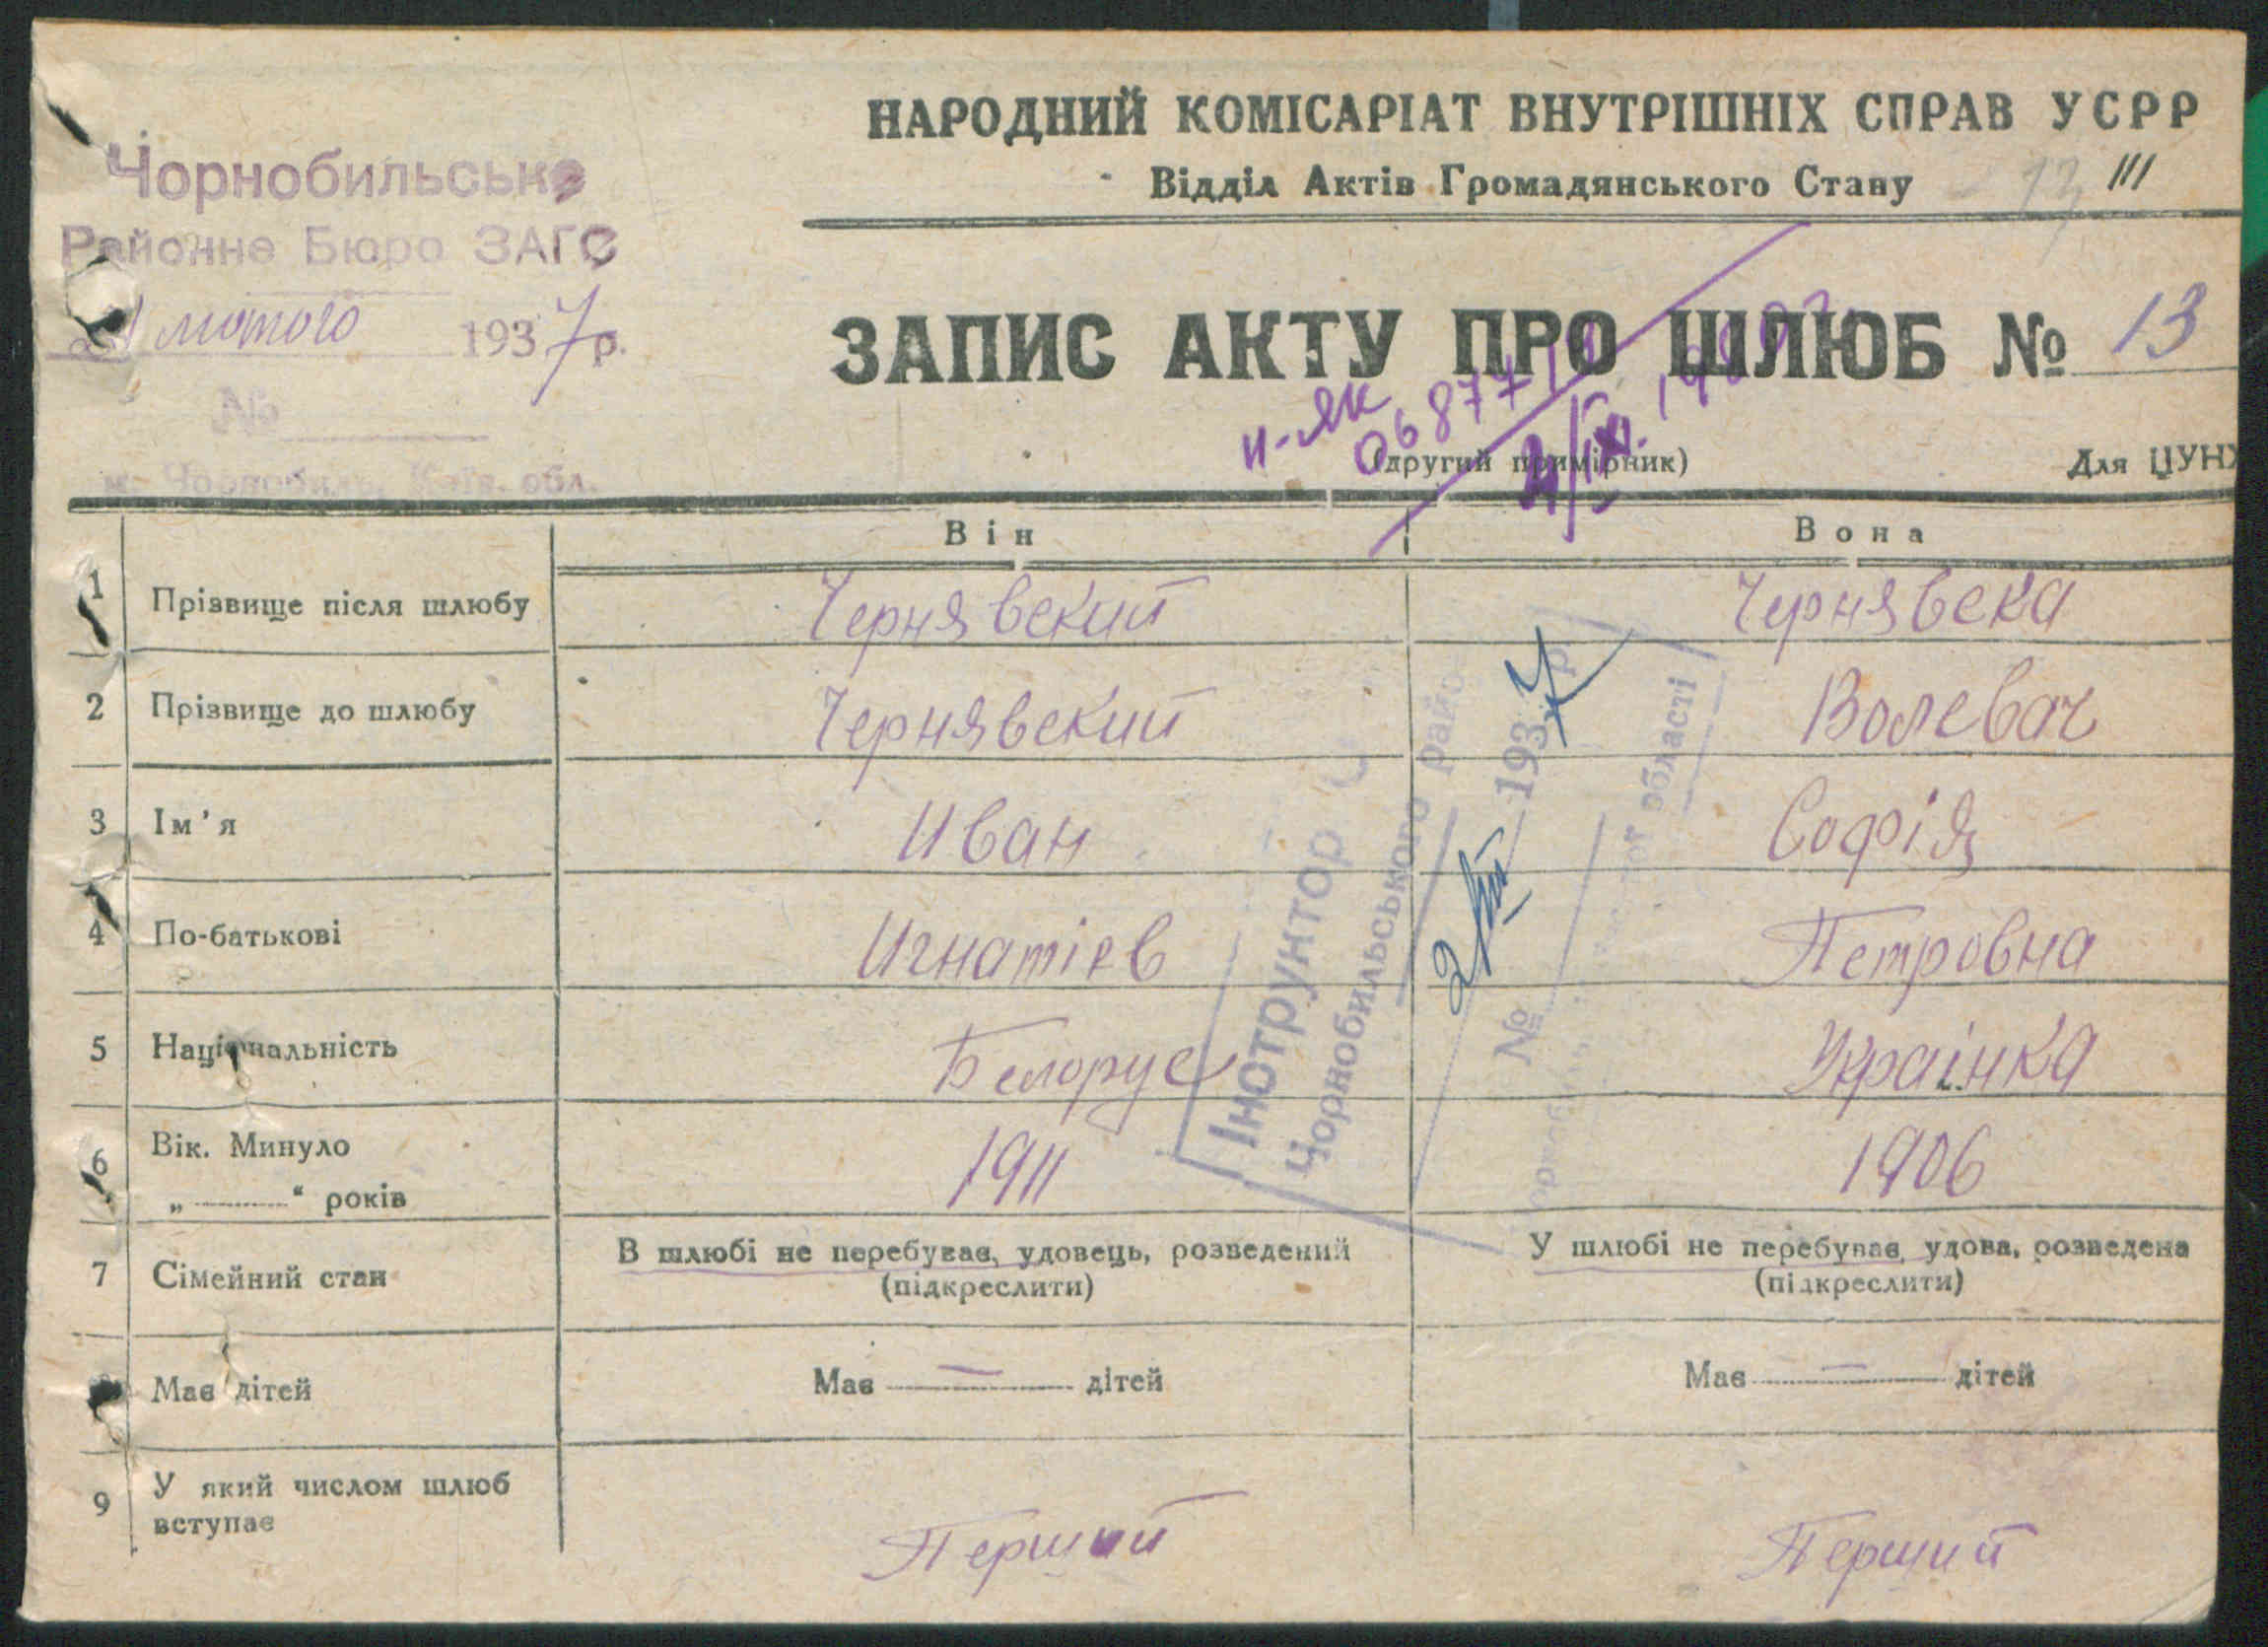 НАРОДНИЙ КОМІСАРІАТ ВНУТРІШНІХ СПРАВ УСРР
Відділ Актів Громадянського Стану
13 III
Чорнобильське
Районне Бюро ЗАГС
лютого 1937 р.
№
м. Чорнобиль, Київ. обл.
ЗАПИС АКТУ ПРО ШЛЮБ № 13
(другий примірник)
Для ЦУНХ
Він Вона
1 Прізвище після шлюбу Чернявский Чернявска
2 Прізвище до шлюбу Чернявский Волевач
3 Ім'я Иван Софія
4 По-батькові Игнатієв Петровна
5 Національність Белорус Украінка
6 Вік. Минуло
„ “ років 1911 1906
7 Сімейний стан В шлюбі не перебував, удовець, розведений У шлюбі не перебував, удова, розведена
(підкреслити) (підкреслити)
Має дітей Має — дітей Має — дітей
9 У який числом шлюб
вступає Перший Перший
Інструктор
Чорнобильського район
193 7 р
№
області